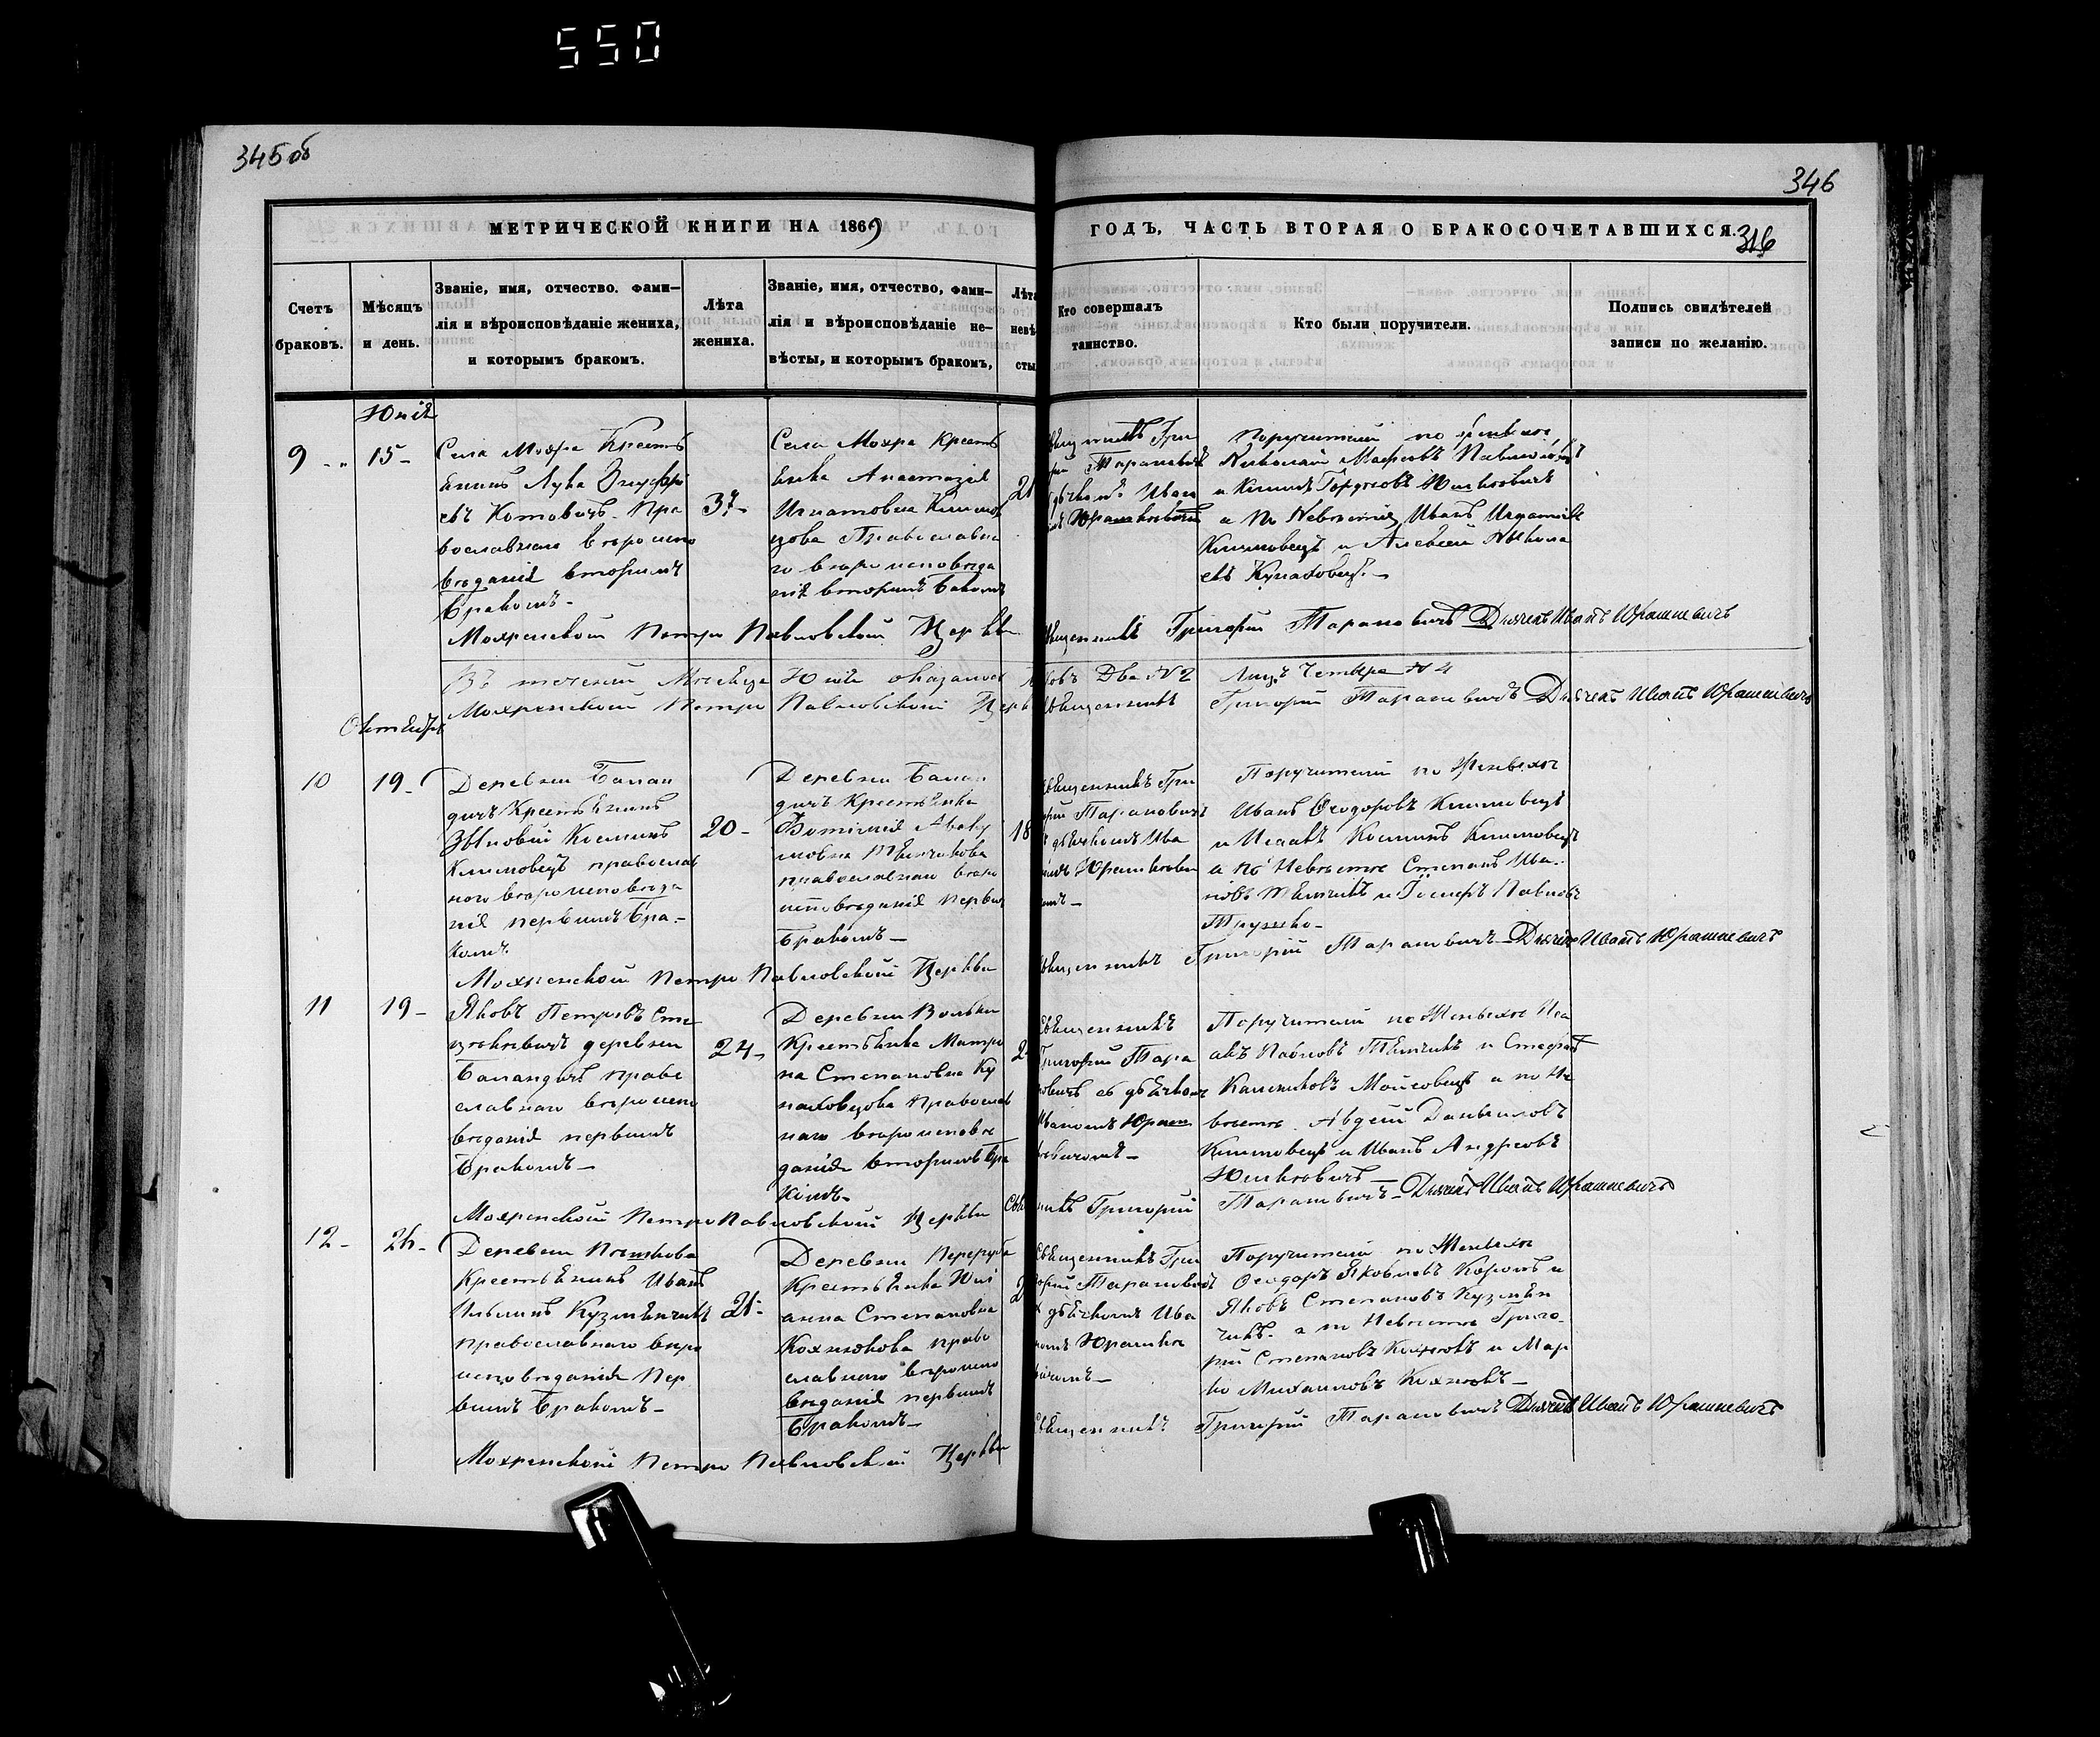 550
345об
346
МЕТРИЧЕСКОЙ КНИГИ НА 1869
ГОДЪ, ЧАСТЬ ВТОРАЯ О БРАКОСОЧЕТАВШИХСЯ.
316
Счетъ
браковъ.
Мѣсяцъ
и день.
Званіе, имя, отчество. фами-
лія и вѣроисповѣданіе жениха,
и которымъ бракомъ.
Лѣта
жениха.
Званіе, имя, отчество, фами-
лія и вѣроисповѣданіе не-
вѣсты, и которымъ бракомъ,
Лѣта
невѣ
сты
Кто совершалъ
таинство.
Кто были поручители.
Подпись свидѣтелей
записи по желанію.
Юнія
9
15-
Села Мохра Кресть
янинъ Лука Онуфрі
евъ Котовичъ Пра
вославнаго вѣроиспо
вѣданія вторымъ
бракомъ-
37-
Села Мохра Кресть
янка Анастазія
Игнатовна Климов
цова Православна
го вѣроисповѣда
нія вторымъ
21
Григо
Тарановичъ
Иван
Юрашкевичъ
Поручители по женихѣ
Николай
и Климъ Юшковичъ
а по Невѣстѣ Иванъ
Климовецъ и Алексѣй
евъ
Мохренской Петро Павловской Церкви
Священникъ Григорій Тарановичъ Дьячекъ Иванъ Юрашкевичъ
Въ теченіи Мѣсяца Юнія оказалось
Два №2 Лицъ Четыре №4
Мохренской Петро Павловской Церк
Священникъ Григорій Тарановичъ Дьячекъ Иванъ Юрашкевичъ
Октября
10
19-
Деревни Балан
дичъ Крестьянинъ
Зѣновій Косминъ
Климовецъ православ
наго вѣроисповѣда
нія первымъ бра-
комъ.
20-
Деревни Балан
дичъ Крестьянка
православнаго вѣро
исповѣданія первым
бракомъ-
18
Священникъ Гри
Тарановичъ
дьячкомъ Ива
Юрашкеви
Поручители по Женихѣ
Иванъ Ѳеодоровъ Климовецъ
и Исаакъ Косминъ Климовецъ
а по Невѣстѣ Степанъ Ива-
новъ и Павловъ
Мохренской Петро Павловской Церкви
Священникъ Григорій Тарановичъ Дьячекъ Иванъ Юрашкевичъ
11
19-
Яковъ Петровъ
деревни
Баландичъ право
славнаго вѣроиспо
вѣданія первымъ
бракомъ-
24-
Деревни Вольки
Крестьянка Матро
на Степановна Ку
православ
наго вѣроисповѣ
данія вторымъ бра
комъ-
2
Священникъ
Григорій Тара
новичъ съ дьячкомъ
Иваномъ Юраш
кевичомъ-
Поручители по Женихѣ Иса
акъ и
а по Не
вѣстѣ Авдей Даніиловъ
Климовецъ и Иванъ Андреевъ
Юшкевичъ-
Мохренской Петро Павловской Церкви Свя
никъ Григорій Тарановичъ Дьячекъ Иванъ Юрашкевичъ
12-
26-
Деревни
Крестьянинъ Иванъ
Ильинъ Кузмѣнчикъ
православнаго вѣро
исповѣданія Пер
вымъ бракомъ-
21-
Деревни Переруба
Крестьянка Юлі
анна Степановна
Кохнюкова право
славнаго вѣроиспо
вѣданія первымъ
бракомъ-
2
Священникъ Гри
горій Тарановичъ
дьячкомъ Ива
номъ Юрашке
вичомъ-
Поручители по Женихѣ
Ѳеодоръ Яковлевъ и
Яковъ Степановъ Кузмѣн
чикъ. а по Невѣстѣ Григо-
рій Степановъ Кохнюкъ и Мар
ко Михаиловъ Кохнюкъ-
Мохренской Петро Павловской Церкви
Священникъ Григорій Тарановичъ Дьячекъ Иванъ Юрашкевичъ